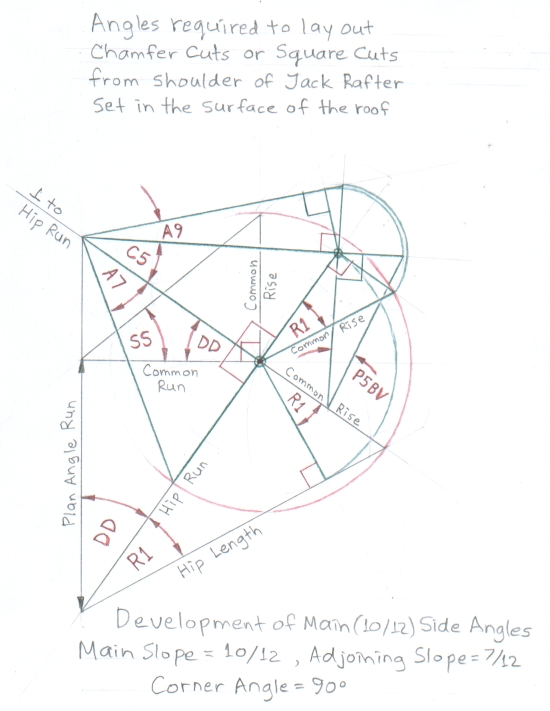 Angles required to lay out
Chamfer Cuts or Square Cuts
from shoulder of Jack Rafter
Set in the surface of the roof
⊥ to
Hip Run
A9
C5
A7
Common
Rise
SS
DD
R1
Common Rise
Common
Run
Common
Rise
P5BV
R1
Plan Angle Run
Hip Run
DD
R1
Hip Length
Development of Main (10/12) Side Angles
Main Slope = 10/12 , Adjoining Slope = 7/12
Corner Angle = 90°